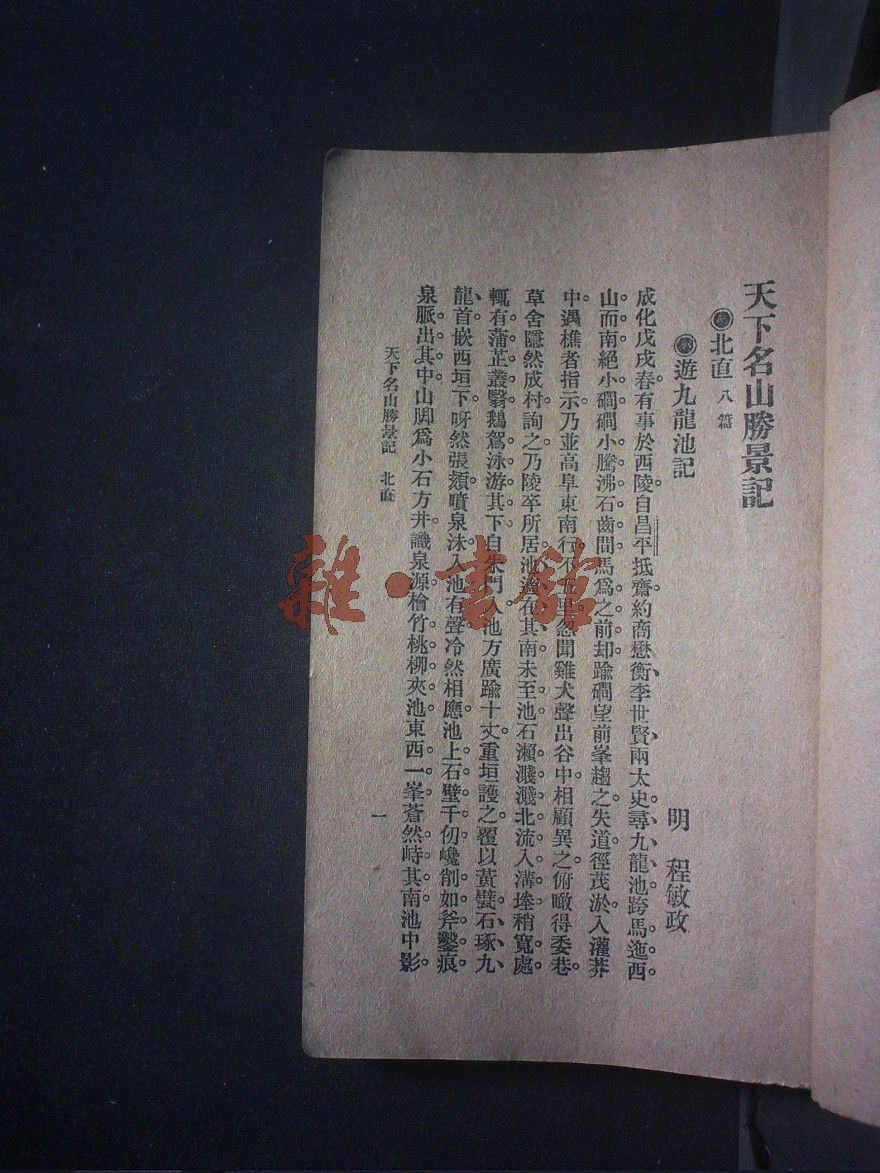 天下名山勝景記
北直 八篇
遊九龍池記
明 程敏政
成化戊戌春有事於西陵自昌平抵齋約商懋衡李世賢兩太史尋九龍池跨馬迤西
山而南絕小磵磵小騰沸石齒間馬爲之前却踰磵望前峯趨之失道徑茂淤入灌莽
中遇樵者指示乃並高阜東南行不五里忽聞雞犬聲出谷中相顧異之俯瞰得委巷
草舍隱然成村詢之乃陵卒所居池溢在其南未至池石瀨濺濺北流入溝塍稍寬處
輒有蒲芷叢翳鵝駕泳游其下自朱門入池方廣踰十丈重垣護之覆以黃甓石琢九
龍首嵌西垣下呀然張頦噴泉沫入池有聲冷然相應池上石壁千仞巉削如斧鑿痕
泉脈出其中山脚爲小石方井識泉源檜竹桃柳夾池東西一峯蒼然峙其南池中影
天下名山勝景記 北直
一
雜·書舘